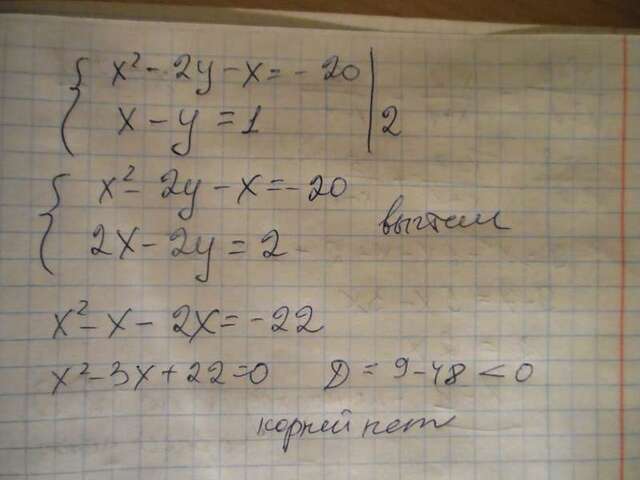 x² - 2y - x = - 20
x - y = 1 | 2
x² - 2y - x = - 20
2x - 2y = 2 вычтем
x² - x - 2x = -22
x² - 3x + 22 = 0 D = 9 - 48 < 0
корней нет